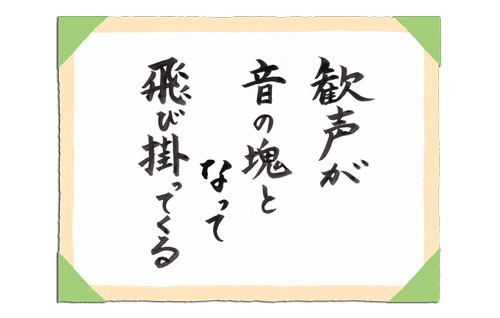 歓声が
音の塊と
なって
飛び掛ってくる